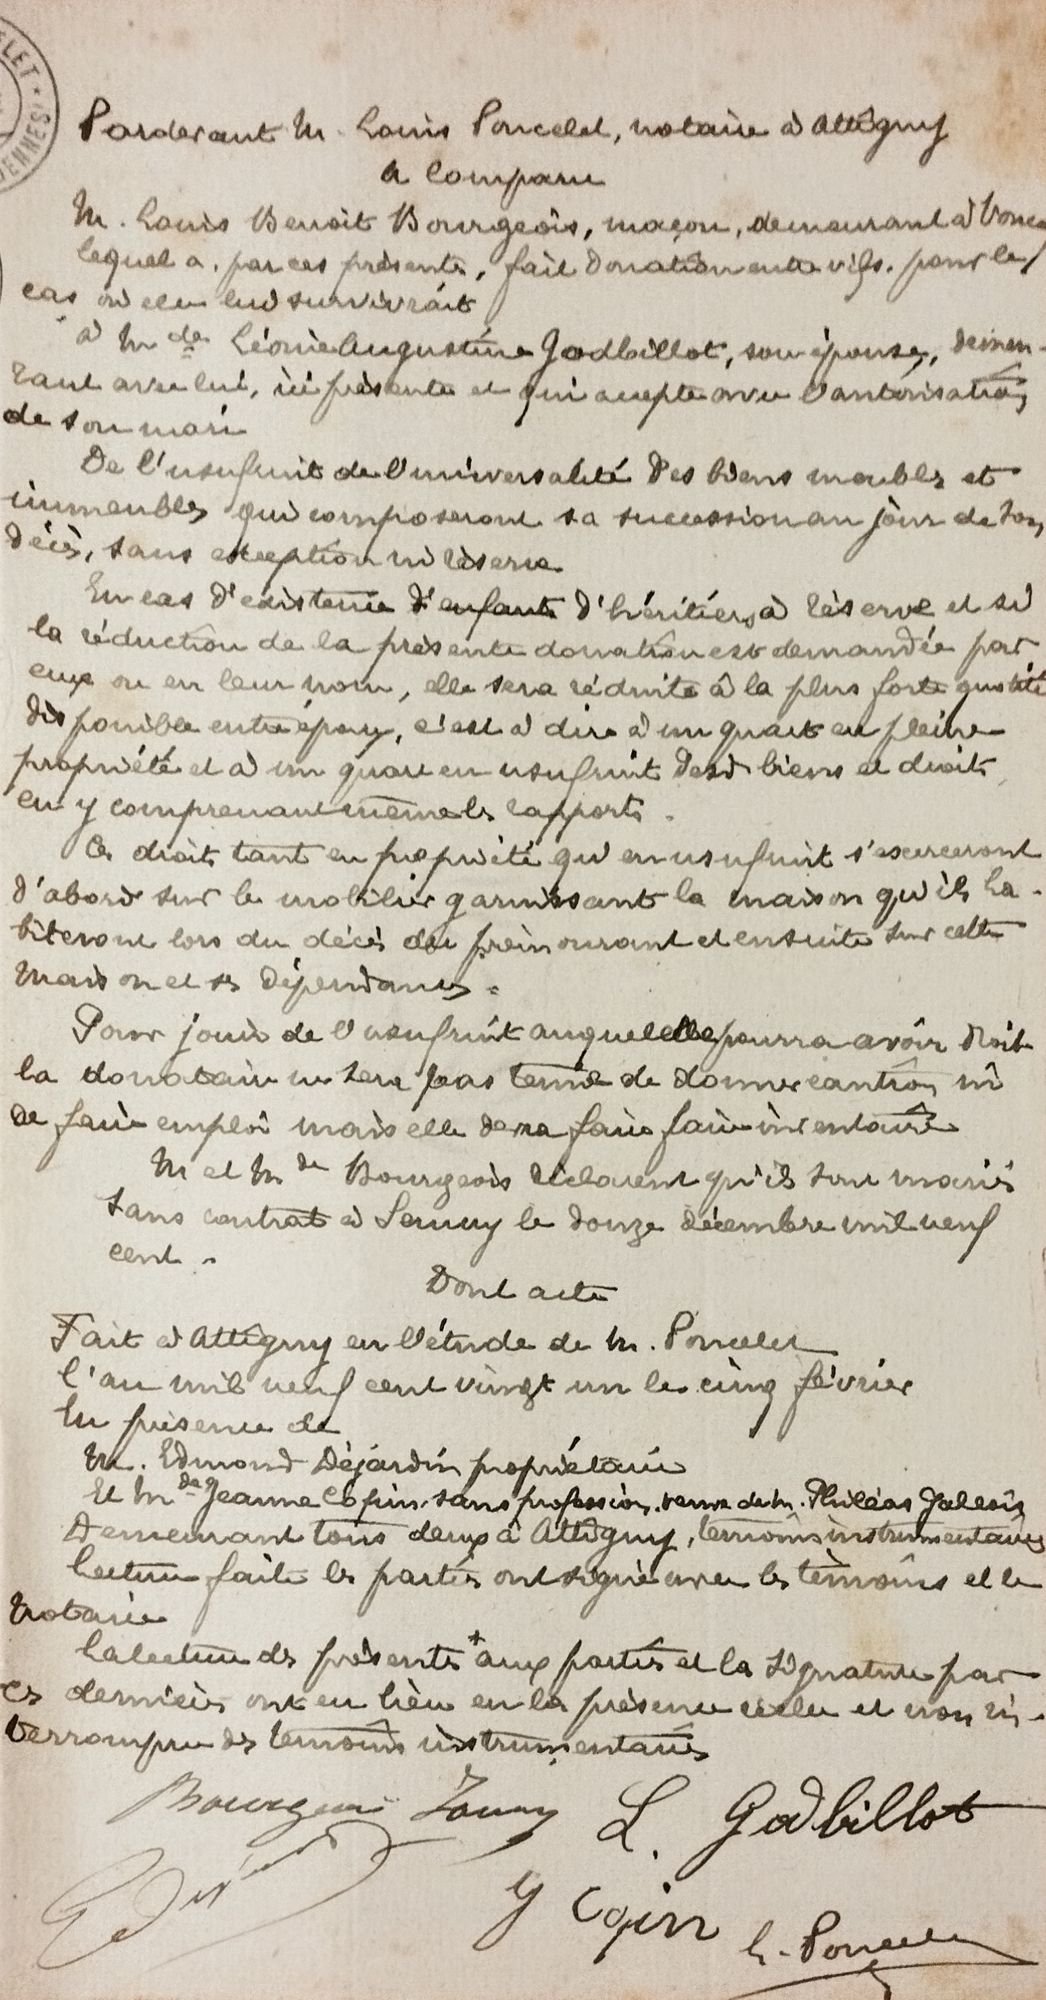 Pardevant M. Louis Poncelet, notaire à Attigny
a Comparu
M. Louis Benoit Bourgeois, maçon, demeurant à Voncq
lequel a, par ces présentes, fait donation entre vifs, pour le
cas où elle lui survivrait
à Mde Léonie Augustine Godbillot, son épouse, demeu-
rant avec lui, ici présente et qui accepte avec l'autorisation
de son mari
De l'usufruit de l'universalité des biens meubles et
immeubles qui composeront sa succession au jour de son
décès, sans exception ni réserve
En cas d'existence d'enfants d'héritiers à réserve et si
la réduction de la présente donation est demandée par
eux ou en leur nom, elle sera réduite à la plus forte quotité
disponible entre époux, c'est à dire à un quart en pleine
propriété et à un quart en usufruit desd. biens et droits
en y comprenant même les rapports.
Ces droits tant en propriété qu'en usufruit s'exerceront
d'abord sur le mobilier garnissant la maison qu'ils ha-
biteront lors du décès du prémourant et ensuite sur cette
maison et ses dépendances.
Pour jouir de l'usufruit auquel elle pourra avoir droit
la donataire ne sera pas tenue de donner caution ni
de faire emploi mais elle devra faire faire inventaire
M et Mde Bourgeois déclarent qu'ils sont mariés
sans contrat à le douze décembre mil neuf
cent.
Dont acte
Fait à Attigny en l'étude de M. Poncelet
l'an mil neuf cent vingt un le cinq février
En présence de
M. Edmond Déjardin propriétaire
Et Mde Jeanne Copin, sans profession, veuve de M. Philéas
Demeurant tous deux à Attigny, témoins instrumentaires
Lecture faite les parties ont signé avec les témoins et le
notaire
La lecture des présentes + aux parties et la signature par
ces derniers ont eu lieu en la présence réelle et non in-
terrompue des témoins instrumentaires
Bourgeois Louis L. Godbillot
J Copin
L. Poncelet